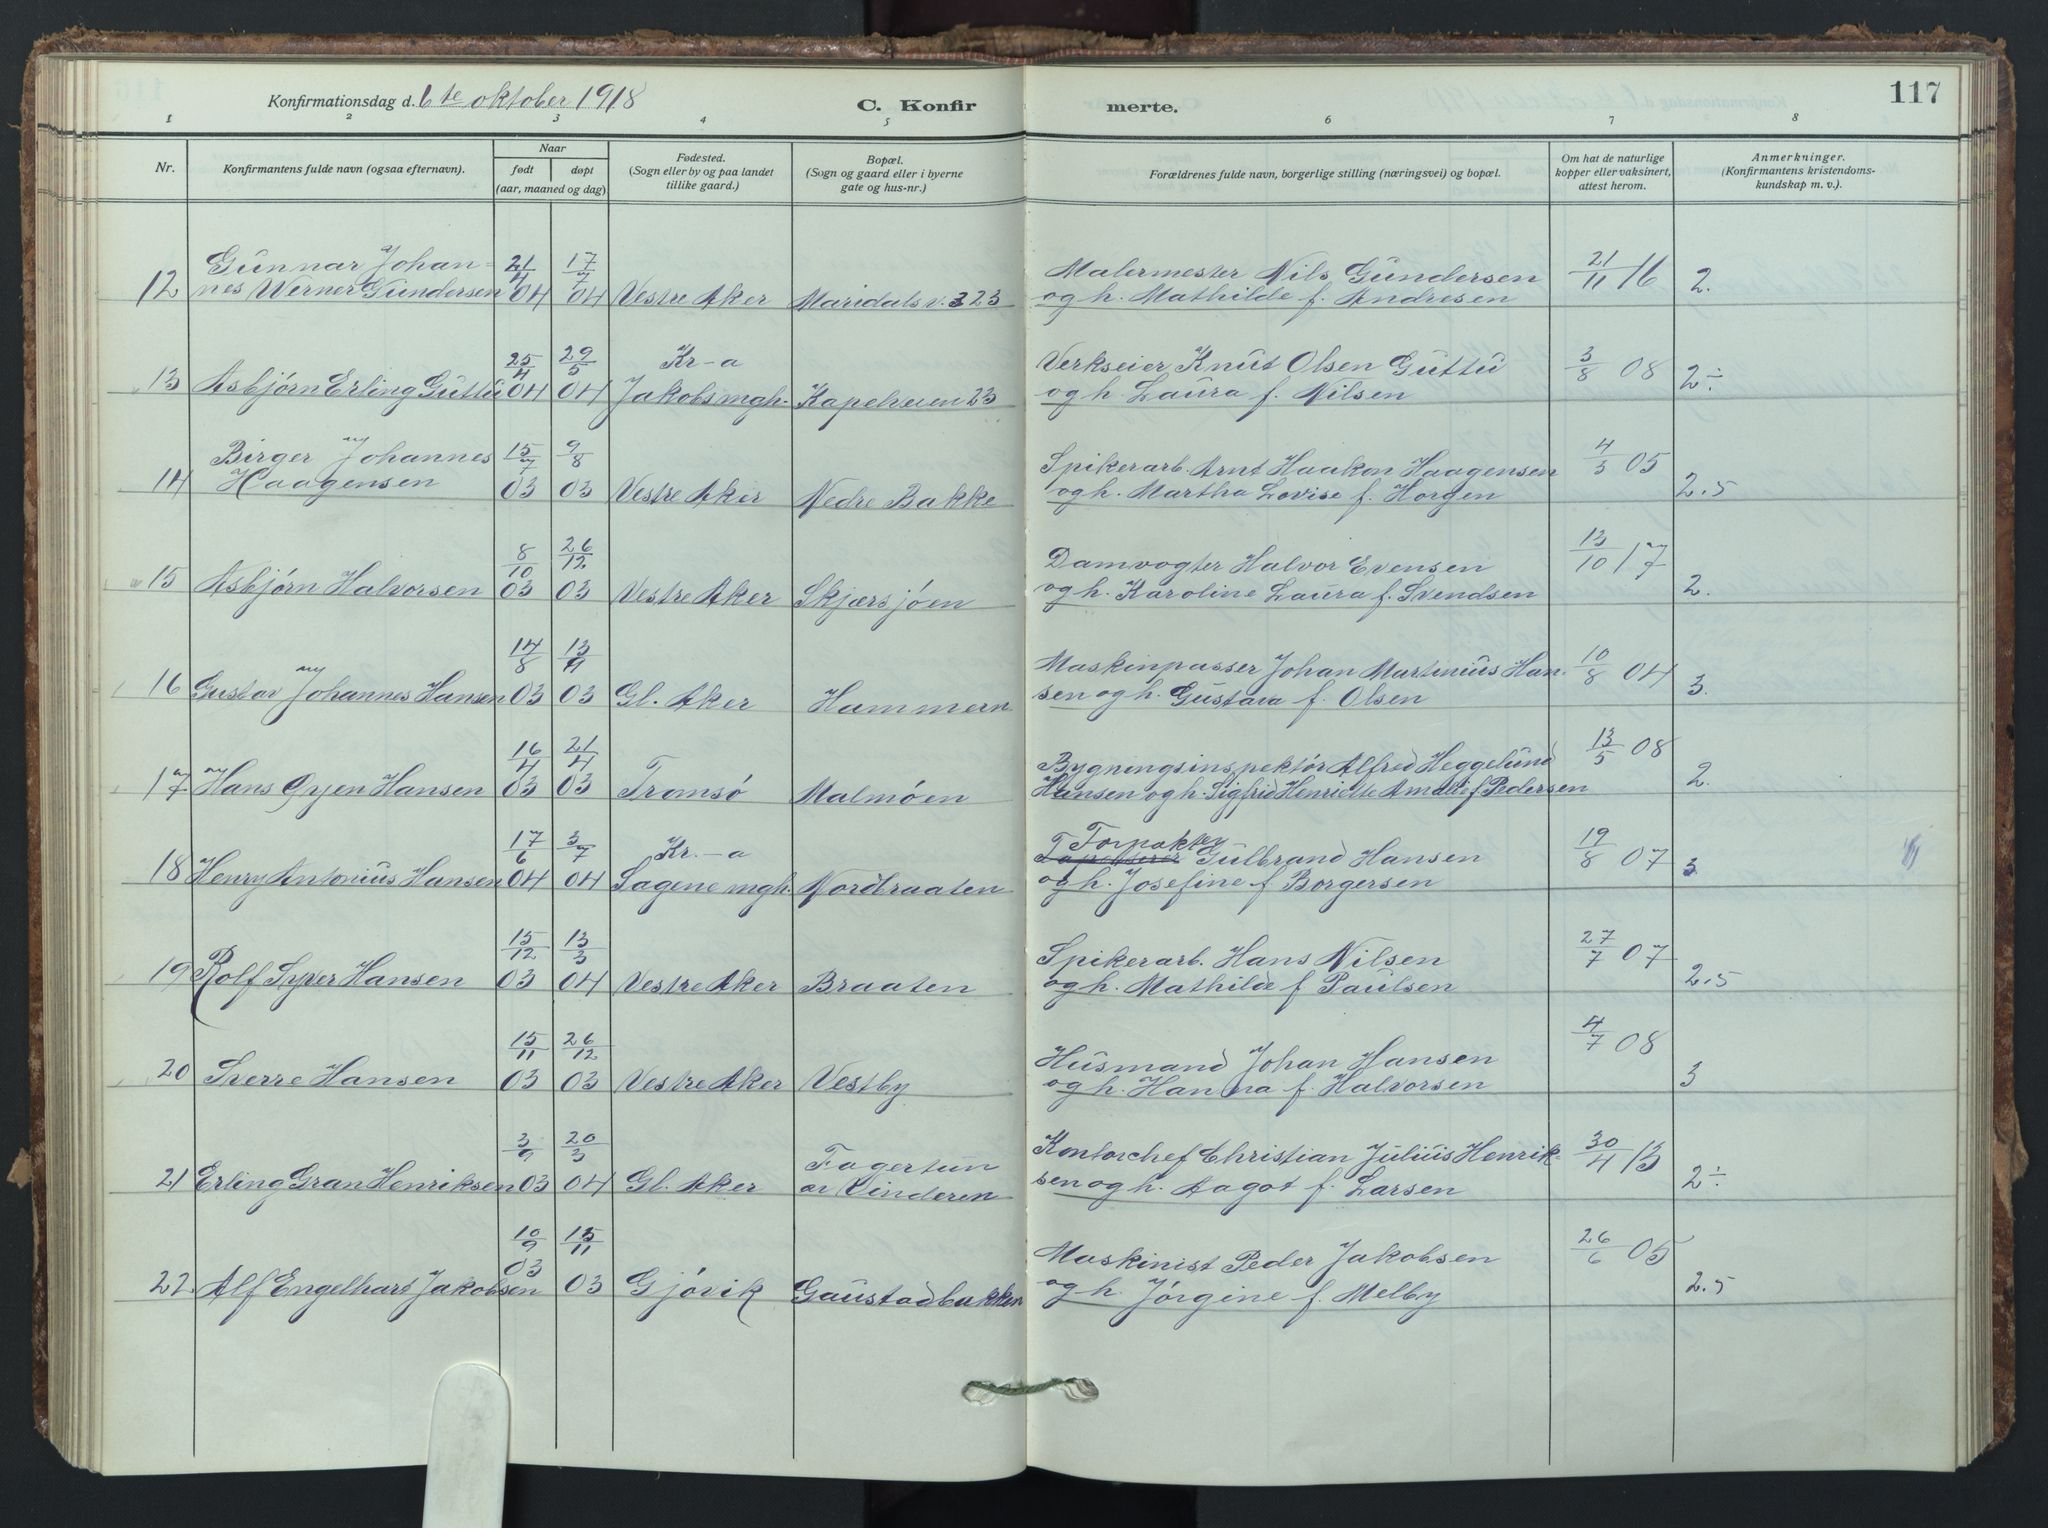 Konfirmationsdag d. 6te oktober 1918
C. Konfirmerte.
117
1 2 3 4 5 6 7 8
Nr.
Konfirmantens fulde navn (ogsaa efternavn).
Naar
født døpt
(aar, maaned og dag)
Fødested.
(Sogn eller by og paa landet
tillike gaard.)
Bopæl.
(Sogn og gaard eller i byerne
gate og hus-nr.)
Forældrenes fulde navn, borgerlige stilling (næringsvei) og bopæl.
Om hat de naturlige
kopper eller vaksinert,
attest herom.
Anmerkninger.
(Konfirmantens kristendoms-
kundskap m. v.).
Gunnar Johan- 21/4 17/7 Malermester Nils Gundersen 21/11 16
12 nes Werner Gundersen 04 04 Vestre Aker Maridalsv. 323 og h. Mathilde f. Andresen 2.
25/4 29/5 Kr-a Verkseier Knut Olsen Guttu 3/8 08
13 Asbjørn Erling Guttu 04 04 Jakobsmgh. Kapelveien 23 og h. Laura f. Nilsen 2÷
Birger Johannes 15/7 9/8 Spikerarb. Arnt Haakon Haagensen 4/3 05
14 Haagensen 03 03 Vestre Aker Nedre Bakke og h. Martha Lovise f. Horgen 2.5
8/10 26/12 Damvogter Halvor Evensen 13/10 17
15 Asbjørn Halvorsen 03 03 Vestre Aker Skjærsjøen og h. Karoline Laura f. Svendsen 2.
14/8 13/9 Maskinpasser Johan Martinius Han- 10/8 04
16 Gustav Johannes Hansen 03 03 Gl. Aker Hammern sen og h. Gustava f. Olsen 3.
16/4 21/4 Bygningsinspektør Alfred Heggelund 13/5 08
17 Hans Gyen Hansen 03 03 Tromsø Malmøen Hansen og h. Sigfrid Henriette Amalie f Pedersen 2.
17/6 3/7 Kr.-a Forpakter Gulbrand Hansen 19/8 07
18 Henry Antonius Hansen 04 04 Sagene mgh. Nordbraaten og h. Josefine f Borgersen 3.
15/12 13/3 Spikerarb. Hans Nilsen 27/7 07
19 Rolf Syver Hansen 03 04 Vestre Aker Braaten og h. Mathilde f Paulsen 2.5
15/11 26/12 Husmand Johan Hansen 4/7 08
20 Sverre Hansen 03 03 Vestre Aker Vestby og h. Hanna f. Halvorsen 3
3/9 20/3 Fagertun Kontorchef Christian Julius Henrik- 30/4 13
21 Erling Gran Henriksen 03 04 Gl. Aker av Vinderen sen og h. Aagot f. Larsen 2÷
10/9 15/11 Maskinist Peder Jakobsen 26/6 05
22. Alf Engelhart Jakobsen 03 03 Gjøvik Gaustadbakken og h. Jørgine f. Melby 2.5